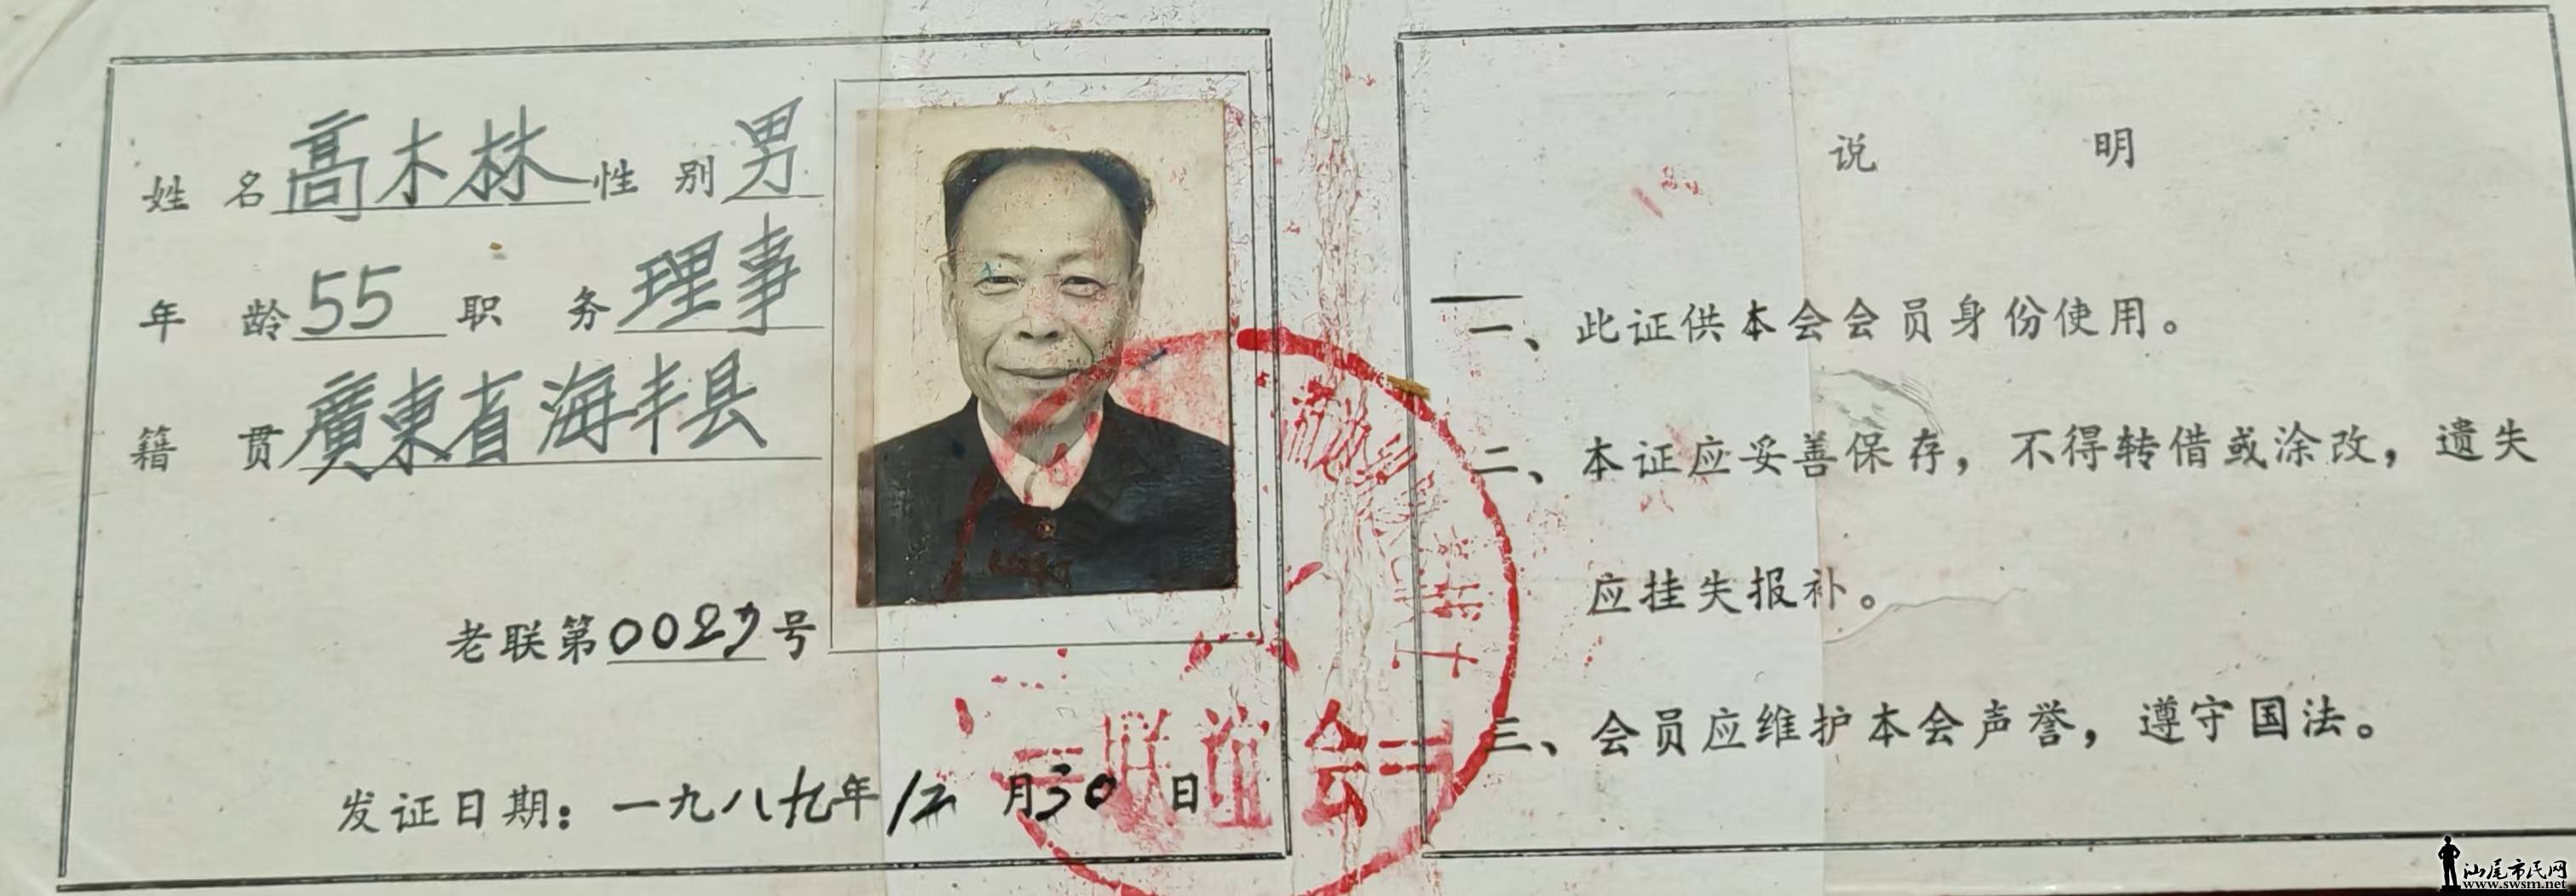 姓 名 高木林 性 别 男
年 龄 55 职 务 理事
籍 贯 廣東省海丰县
老联第0027号
发证日期：一九八九年12月30日
联谊会
说 明
一、此证供本会会员身份使用。
二、本证应妥善保存，不得转借或涂改，遗失
应挂失报补。
三、会员应维护本会声誉，遵守国法。
汕尾市民网
www.swsm.net